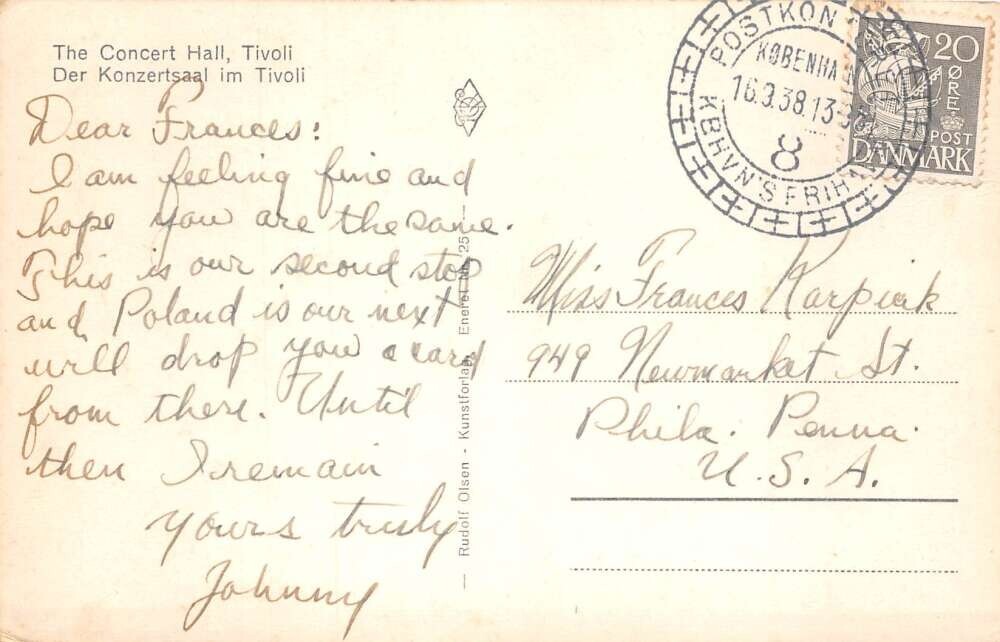 The Concert Hall, Tivoli
Der Konzertsaal im Tivoli
Dear Frances:
I am feeling fine and
hope you are the same.
This is our second stop
and Poland is our next
will drop you a card
from there. Until
then I remain
Yours truly
Johnny
Rudolf Olsen - Kunstforlag. Eneret Nr. 25
POSTKON
KØBENHAVN
16.9.38.13-
8
KBHVN'S FRIH
20
ØRE
POST
DANMARK
Miss Frances Karpiak
949 Newmarket St.
Phila. Penna.
U.S.A.